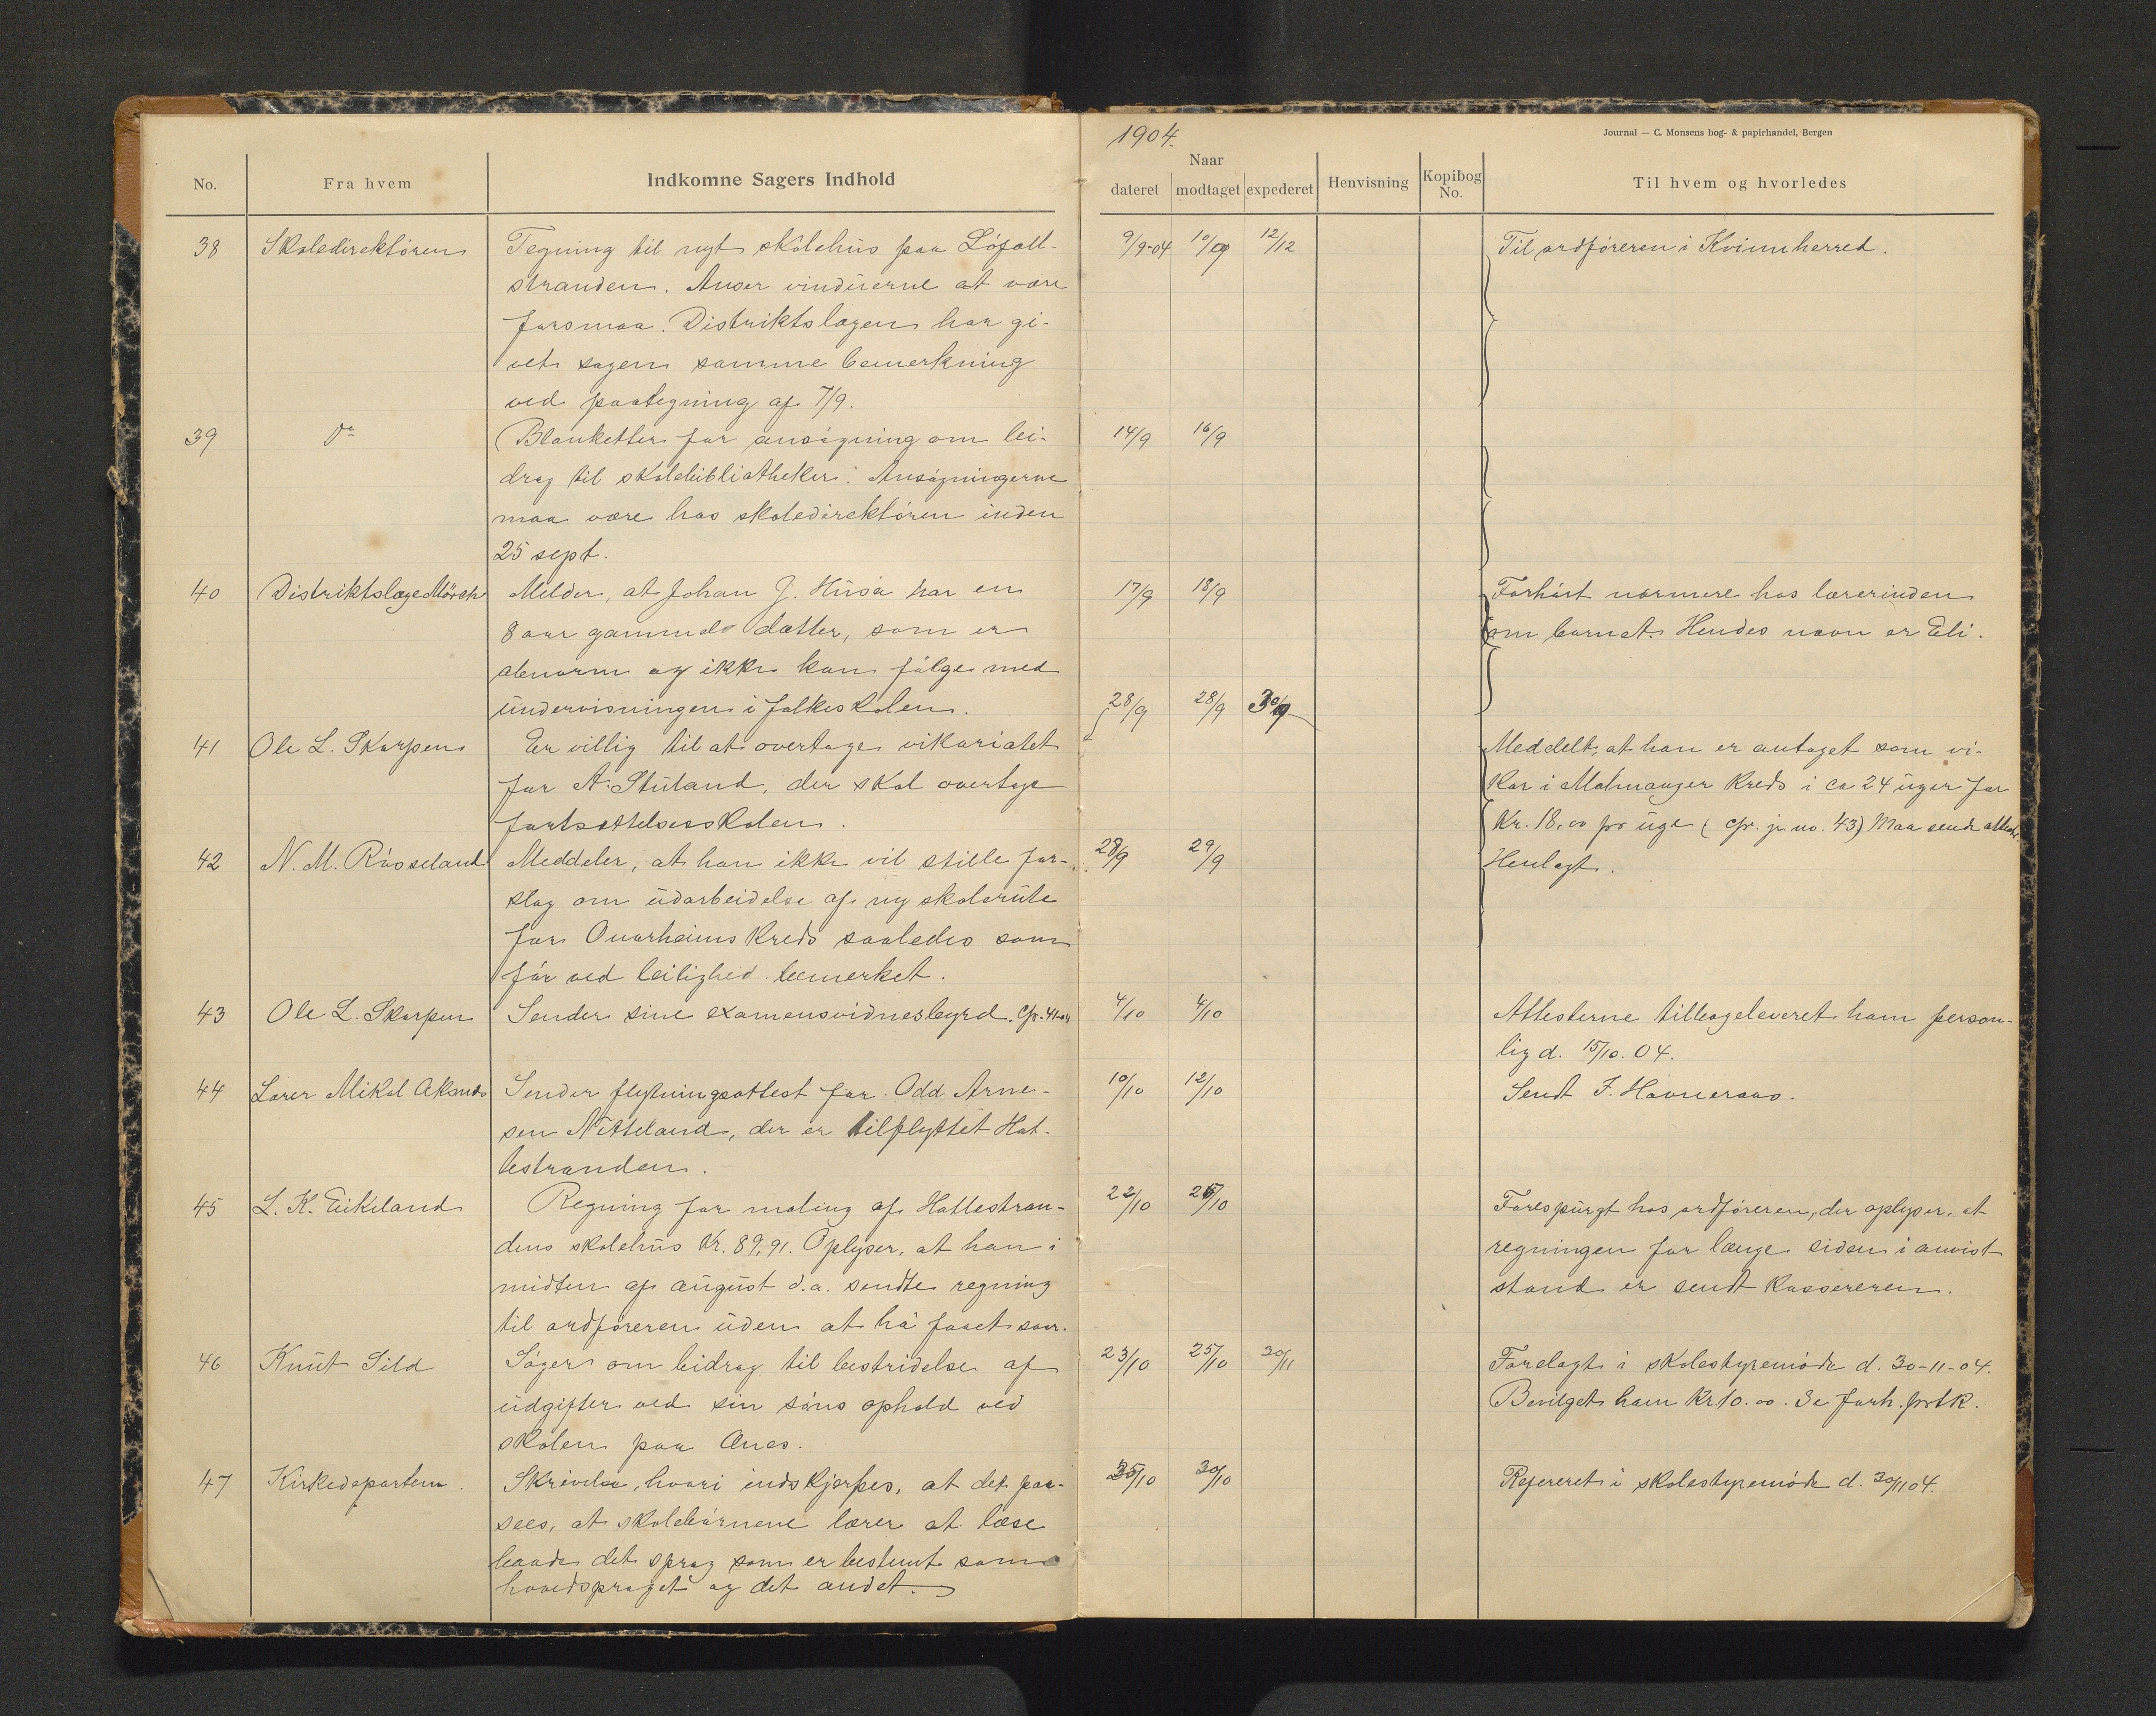 1904.
Journal — C. Monsens bog- & papirhandel, Bergen
No. Fra hvem Indkomne Sagers Indhold Naar dateret modtaget expederet Henvisning Kopibog No. Til hvem og hvorledes
38 Skoledirektören Tegning til nyt skolehus paa Löfall- 9/9-04 10/09 12/12 Til ordföreren i Kvinnherred.
stranden. Anser vinduerne at være
for smaa. Distriktslægen har gi-
vet sagen samme bemerkning
ved paategning af 7/9.
39 Do Blanketter for ansögning om bi- 14/9 16/9
drag til skolebibliotheker. Ansögningerne
maa være hos skoledirektören inden
25 sept.
40 Distriktslæge Mörch Melder, at Johan J. Husa har en 17/9 18/9 Forhört nærmere hos lærerinden
8 aar gammel datter, som er om barnet. Hendes navn er Eli.
abnorm og ikke kan fölge med
undervisningen i folkeskolen.
41 Ole L. Skarpen Er villig til at overtage vikariatet 28/9 28/9 30/9 Meddelt, at han er antaget som vi-
for A. Stuland, der skal overtage kar i Malmanger kreds i ca 24 uger for
fortsættelsesskolen. Kr. 18,00 pr uge (cfr. jr. no. 43) Maa sende
42 N. M. Rösseland Meddeler, at han ikke vil stille for- 28/9 29/9 Henlagt.
slag om udarbeidelse af ny skolerute
for Ovarheims kreds saaledes som
för ved leilighed bemerket.
43 Ole L. Skarpen Sender sine examensvidnesbyrd. Cfr. 41-04 4/10 4/10 Attesterne tilbageleveret ham person-
lig d. 15/10. 04.
44 Lærer Mikal Aksnes Sender flytningsattest for Odd Arne- 10/10 12/10 Sendt F. Havneraas.
sen Nitteland, der er tilflyttet Hat-
lestranden.
45 L. K. Eikeland Regning for maling af Hatlestran- 22/10 25/10 Forespurgt hos ordföreren, der oplyser, at
dens skolehus Kr. 89,91. Oplyser, at han i regningen for længe siden i anvist
midten af august d.a. sendte regning stand er sendt kassereren.
til ordföreren uden at ha faaet svar.
46 Knut Sild Söger om bidrag til bestridelse af 23/10 25/10 30/11 Forelagt i skolestyremöde d. 30-11-04.
udgifter ved sin söns ophold ved Bevilget ham Kr. 10.00. Se forh. prtk.
skolen paa Ænes.
47 Kirkedepartem. Skrivelse, hvori indskjærpes, at det paa- 25/10 30/10 Refereret i skolestyremöde d. 30/11 04.
sees, at skolebörnene lærer at læse
baade det sprog som er bestemt som
hovedsproget og det andet.